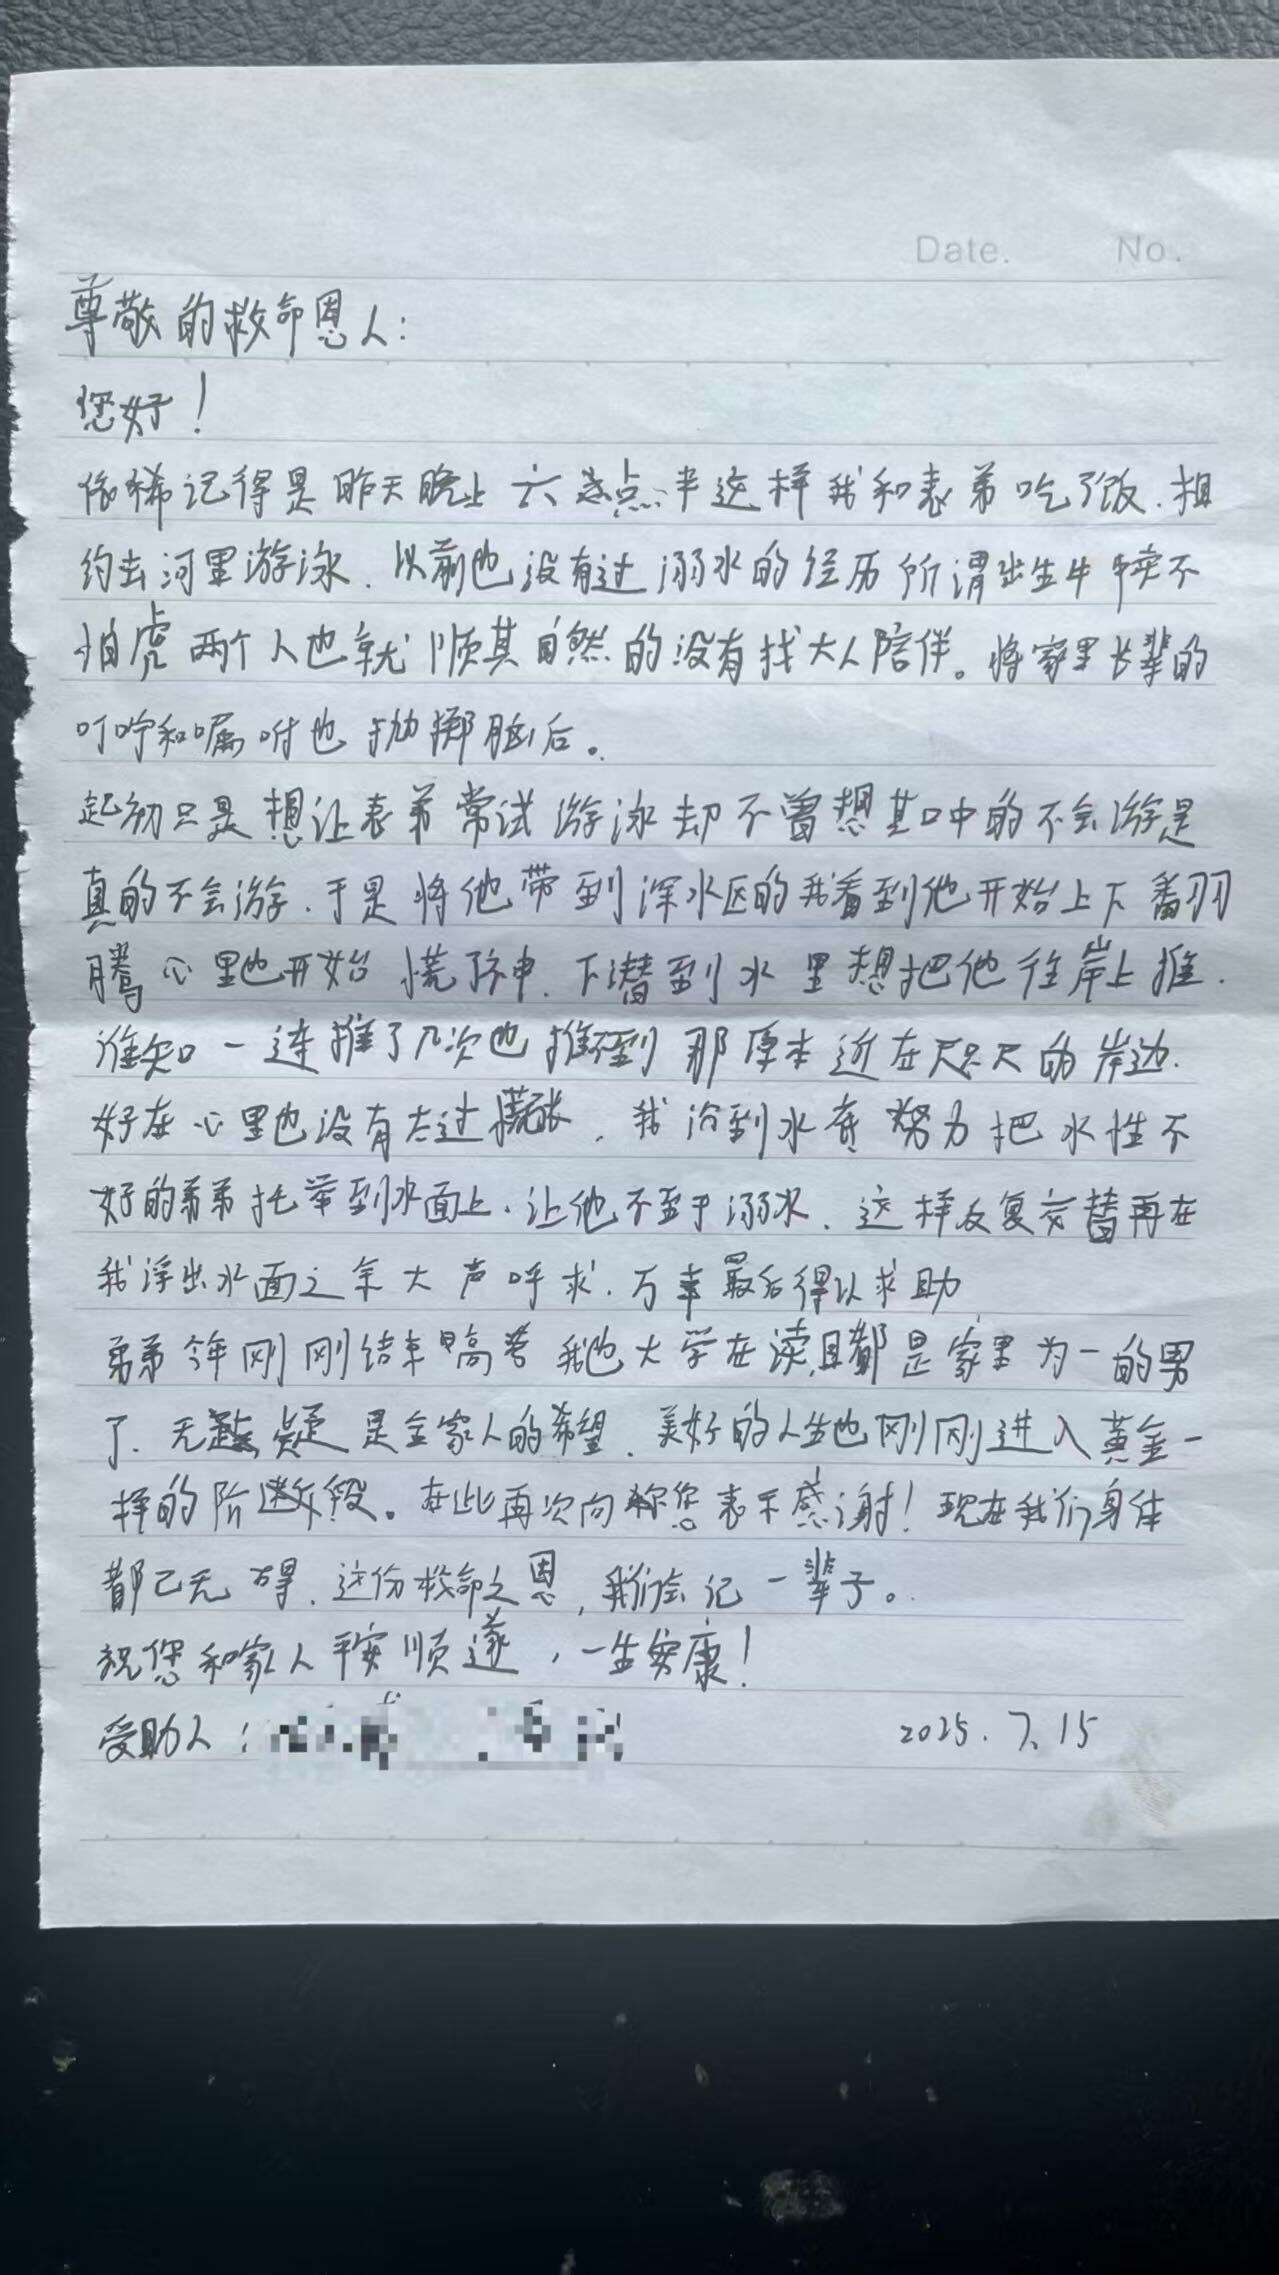 Date. No.
尊敬的救命恩人:
您好!
依稀记得是昨天晚上六点半这样我和表弟吃了饭.相
约去河里游泳.以前也没有过溺水的经历所谓出生牛犊不
怕虎两个人也就顺其自然的没有找大人陪伴。将家里长辈的
叮咛和嘱咐也抛掷脑后。
起初只是想让表弟常试游泳却不曾想其口中的不会游是
真的不会游.于是将他带到深水区的我看到他开始上下翻
腾心里也开始慌了神.下潜到水里想把他往岸上推.
谁知一连推了几次也推不到那原本近在咫尺的岸边.
好在心里也没有太过慌张.我沉到水底努力把水性不
好的弟弟托举到水面上.让他不至于溺水.这样反复交替再在
我浮出水面之余大声呼求.万幸最后得以求助
弟弟今年刚刚结束高考我也大学在读且都是家里为一的男
丁.无疑是全家人的希望.美好的人生也刚刚进入黄金一
样的阶段。在此再次向您表示感谢!现在我们身体
都已无碍.这份救命之恩,我们会记一辈子。
祝您和家人平安顺遂,一生安康!
受助人: 2025.7.15